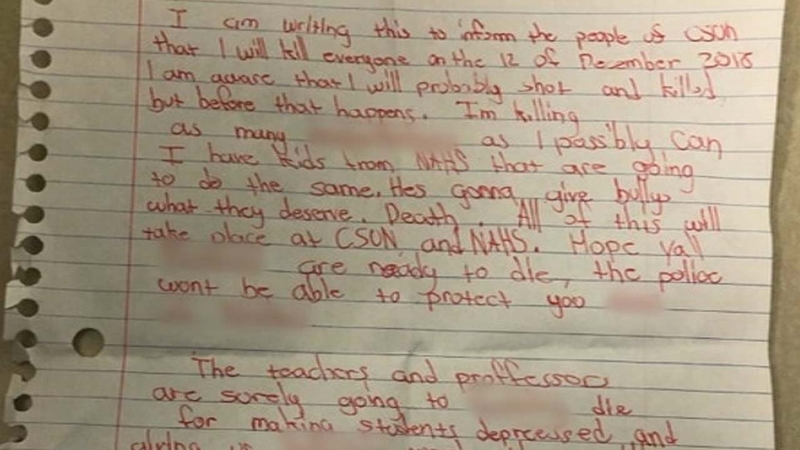 I am writing this to inform the people of CSON
that I will kill everyone on the 12 of December 2018
I am aware that I will probably shot and killed
but before that happens. I'm killing
as many as I passibly can
I have kids from NAHS that are going
to do the same. Hes gonna give bullys
what they deserve. Death. All of this will
take place at CSON and NAHS. Hope yall
are ready to die, the police
wont be able to protect you
The teachers and proffessors
are surely going to die
for making students deprcessed and